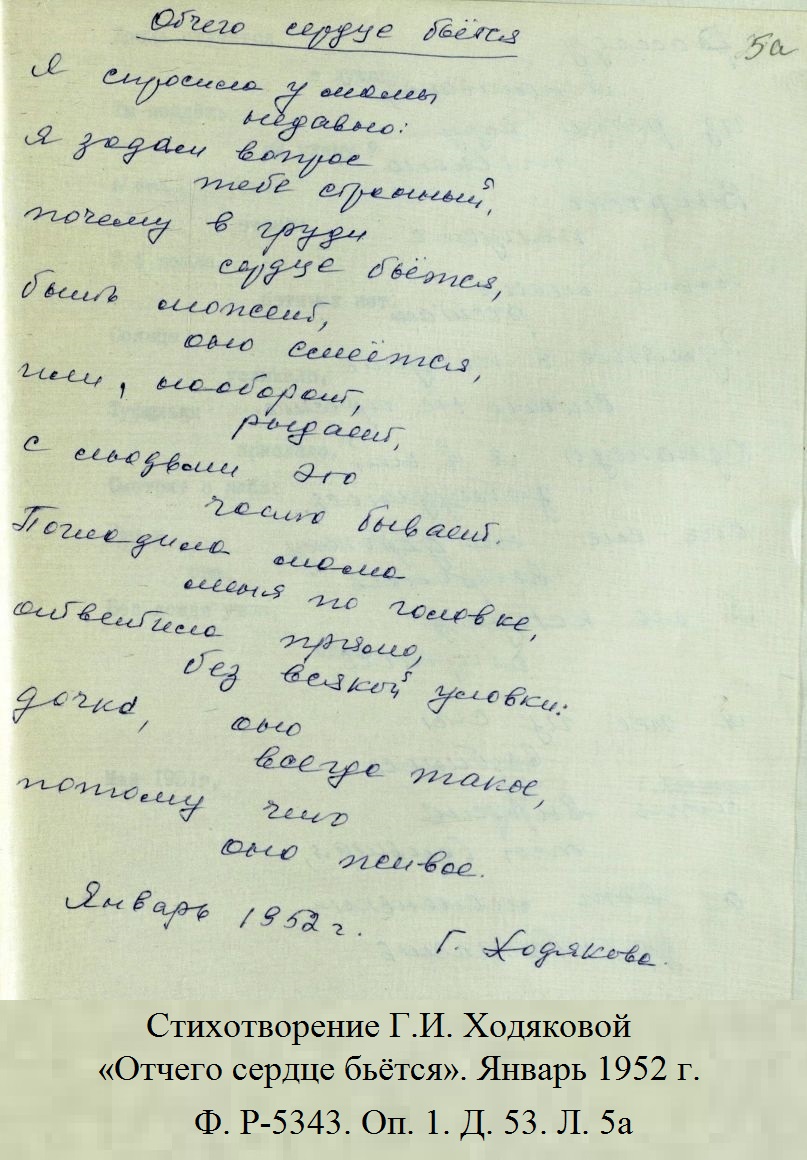 Отчего сердце бьётся
5а
Я спросила у мамы
недавно:
Я задам вопрос
тебе странный,
почему в груди
сердце бьётся,
быть может,
оно смеётся,
или, наоборот,
рыдает,
с людьми это
часто бывает.
Погладила мама
меня по головке,
ответила прямо,
без всякой уловки:
дочка, оно
всегда такое,
потому что
оно живое.
Январь 1952 г.
Г. Ходякова.
Стихотворение Г.И. Ходяковой
«Отчего сердце бьётся». Январь 1952 г.
Ф. Р-5343. Оп. 1. Д. 53. Л. 5а